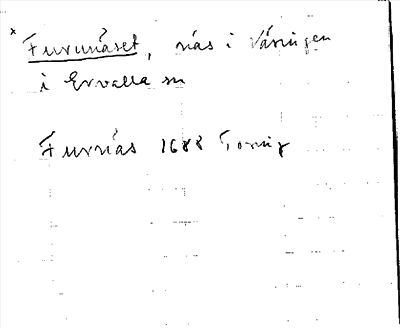 x Furunäset, näs i Väringen
i Ervalla sn
Furnäs 1688